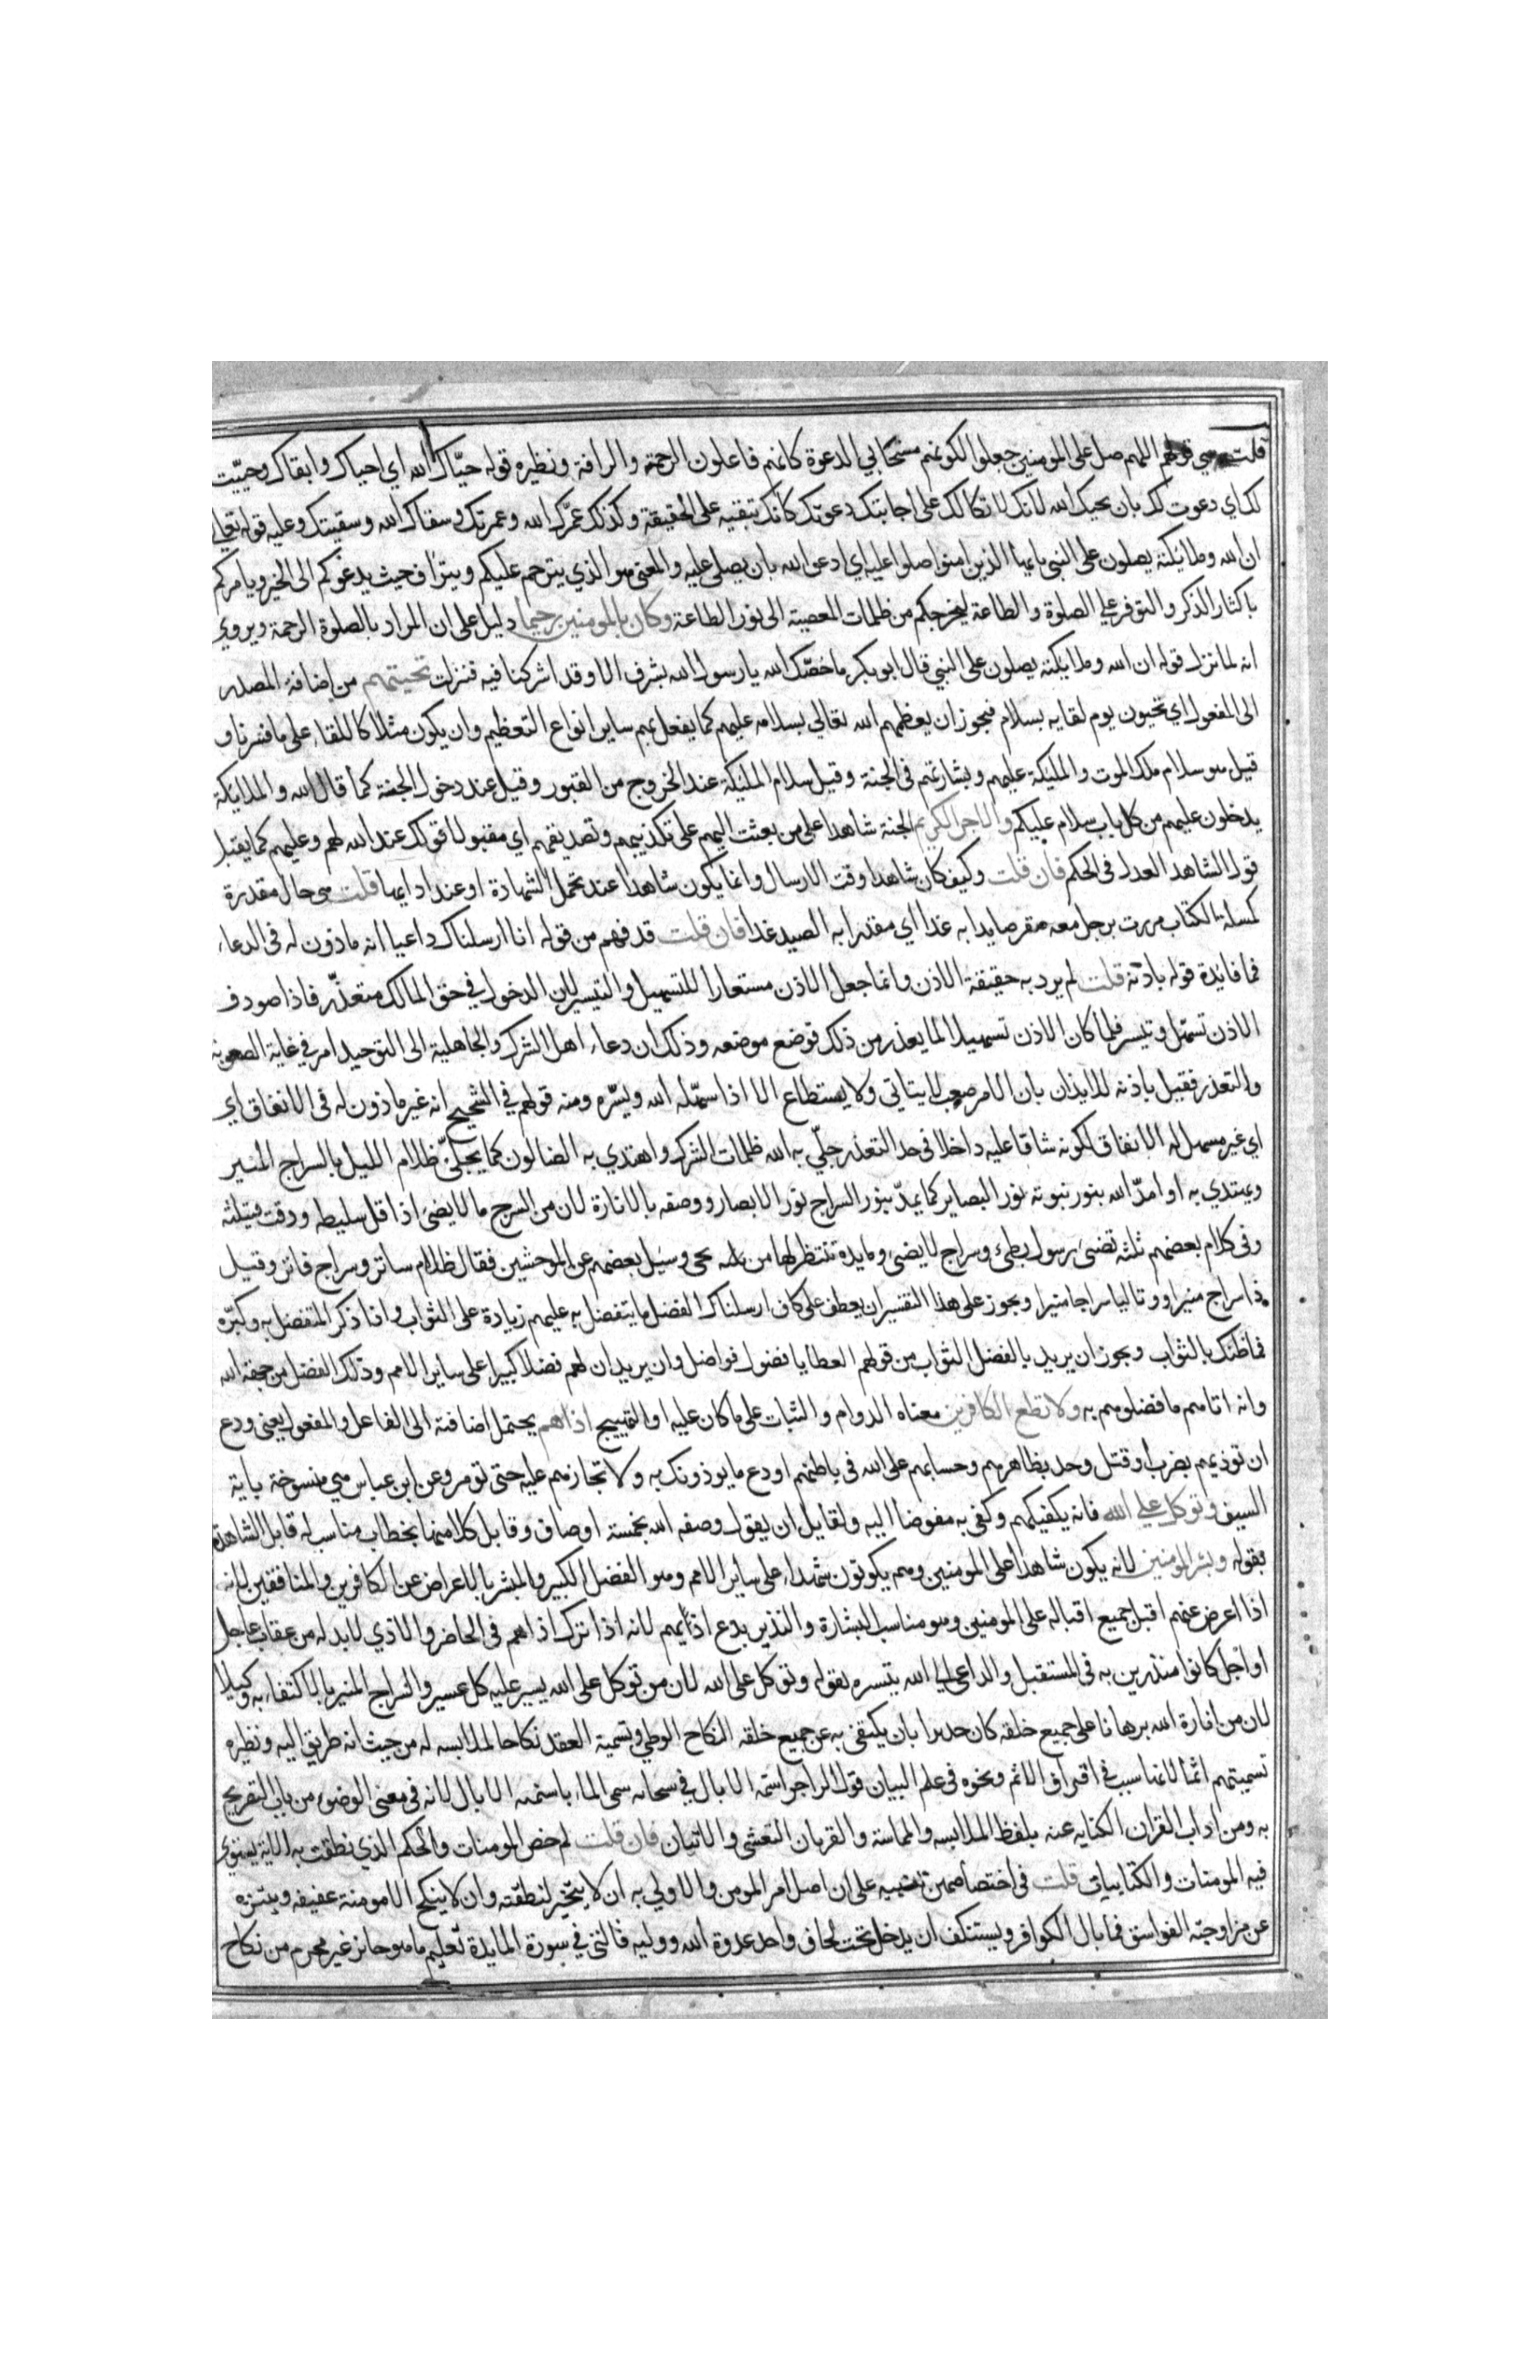 قلت هي قولهم اللهم صل على المومنين جعلوا لكونهم مستجابي الدعوة كانهم فاعلون الرحمة والرافة ونظيره قوله حيّاك الله اي احياك وابقاك وحيّيت
لك اي دعوت لك بان يحيك الله لانك لاتكالك على اجابتك دعوتك كانك تبقيه على الحقيقة وكذلك عمّرك الله وعمرتك وسقاك الله وسقيتك وعليه قوله تعالى
ان الله وملائكته يصلون على النبي يا ايها الذين امنوا صلوا عليه اي ادعوا الله بان يصلي عليه والمعنى هو الذي يترحم عليكم ويتراف حيث يدعوكم الى الخير ويامركم
باكثار الذكر والتوفر علي الصلوة والطاعة ليخرجكم من ظلمات المعصية الى نور الطاعة وكان بالمومنين رحيما دليل على ان المراد بالصلوة الرحمة ويروي
انه لما نزل قوله ان الله وملايكته يصلون على النبي قال ابو بكر ما خصّك الله يا رسول الله بشرف الا وقد اشركنا فيه فنزلت تحيتهم من اضافة المصدر
الى المفعول اي تحيون يوم لقايه بسلام فيجوز ان يعظمهم الله تعالي بسلامه عليهم كما يفعل بهم ساير انواع التعظيم وان يكون مثلا كاللقاء على ما فسرنا و
قيل هو سلام ملك الموت والمليكة عليهم وبشارتهم في الجنة وقيل سلام المليكة عند الخروج من القبور وقيل عند دخول الجنة كما قال الله والملايكة
يدخلون عليهم من كل باب سلام عليكم والاجر الكريم الجنة شاهدا على من بعثت اليهم على تكذيبهم وتصديقهم اي مقبولا قولك عند الله لهم وعليهم كما يقبل
قول الشاهد العدل في الحكم فان قلت وكيف كان شاهدا وقت الارسال وانما يكون شاهدا عند تحمل الشهادة او عند ادايها قلت هي حال مقدرة
كمسلة الكتاب مررت برجل معه صقر صايدا به غدا اي مقدرا به الصيد غدا فان قلت قد فهم من قوله انا ارسلناك داعيا انه ماذون له في الدعاء
فما فايدة قوله باذنه قلت لم يرد به حقيقة الاذن وانما جعل الاذن مستعارا للتسهيل والتيسير لان الدخول في حق المالك متعذّر فاذا صودف
الاذن تسهّل وتيسر فلما كان الاذن تسهيلا لما يعذر من ذلك فوضع موضعه وذلك ان دعاء اهل الشرك والجاهلية الى التوحيد امر في غاية الصعوبة
والتعذر فقيل باذنه للايذان بان الامر صعب لا يتاتي ولا يستطاع الا اذا سهّله الله ويسّره ومنه قولهم في الشحيح انه غير ماذون له في الانفاق اي
اي غير مسهل له الانفاق لكونه شاقا عليه داخلا في حد التعذر جلّي به الله ظلمات الشرك واهتدي به الضالون كما يجلّى ظلام الليل بالسراج المنير
ويهتدي به او امدّ الله بنور نبوته نور البصاير كما يمدّ بنور السراج نور الابصار ووصفه بالانارة لان من السرج ما لا يضئ اذا قل سليطه ودقت فتيلته
وفي كلام بعضهم ثلثه تضنى رسول بطئ وسراج لا يضئ ومايدة تنتظر لها من يجي وسئل بعضهم عن الموحشين فقال ظلام ساتر وسراج فاتر وقيل
ذا سراج منيرا او وتاليا سراجا منيرا ويجوز على هذا التفسير ان يعطف على كاف ارسلناك الفضل ما يتفضل به عليهم زيادة على الثواب واذا ذكر المتفضل به وكبّره
فما ظنك بالثواب ويجوز ان يريد بالفضل الثواب من قولهم العطايا فضول فواضل وان يريد ان لهم فضلا كبيرا على ساير الامم وذلك الفضل من جهة الله
وانه اتاهم ما فضلوهم به ولا تطع الكافرين معناه الدوام والثبات على ما كان عليه او التهييج اذاهم يحتمل اضافته الى الفاعل والمفعول يعني ودع
ان توذيهم بضرب او قتل وخذ بظاهرهم وحسابهم على الله في باطنهم او دع ما يوذونك به ولا تجازهم عليه حتى تومر وعن ابن عباس هي منسوخة باية
السيف وتوكل علي الله فانه يكفيكهم وكفي به مفوضا اليه ولقايل ان يقول وصفه الله بخمسة اوصاف وقابل كلا منها بخطاب مناسب له قابل الشاهد
بقوله وبشر المومنين لانه يكون شاهدا على المومنين وهم يكونون شهداء على ساير الامم وهو الفضل الكبير والمبشر بالاعراض عن الكافرين والمنافقين لانه
اذا اعرض عنهم اقبل جميع اقباله على المومنين وهو مناسب للبشارة والنذير بدع اذايهم لانه اذا ترك اذاهم في الحاضر والاذي لابد له من عقاب عاجل
او اجل كانوا منذرين به في المستقبل والداعي الي الله بتيسره بقوله وتوكل على الله لان من توكل على الله يسير عليه كل عسير والسراج المنير بالاكتفاء به وكيلا
لان من انارة الله برهانا على جميع خلقه كان جديرا بان يكتفي به عن جميع خلقه النكاح الوطي وتسمية العقد نكاحا لملابسه له من حيث انه طريق اليه ونظيره
تسميتهم اثما لانها سبب في اقتراف الاثم ونحوه في علم البيان قول الراجز اسنمة الابال في سحابه سمى الماء باسنمه الابال لانه في معنى الوضوء من باب التصريح
به ومن اداب القران الكنايه عنه بلفظ الملابسه والمماسة والقربان التغشى والاتيان فان قلت لم خص المومنات والحكم الذي نطقت به الاية يستوي
فيه المومنات والكتابيات قلت في اختصاصهن تنبيه على ان اصل امر المومن والاولي به ان لا يتخير لنطفته وان لا ينكح الا مومنة عفيفه ويتنزه
عن مزاوجة الفواسق فما بال الكوافر ويستنكف ان يدخل تحت لحاف واحد عدوة الله ووليه فالتي في سورة المايدة تعليم ما هو جايز غير محرم من نكاح